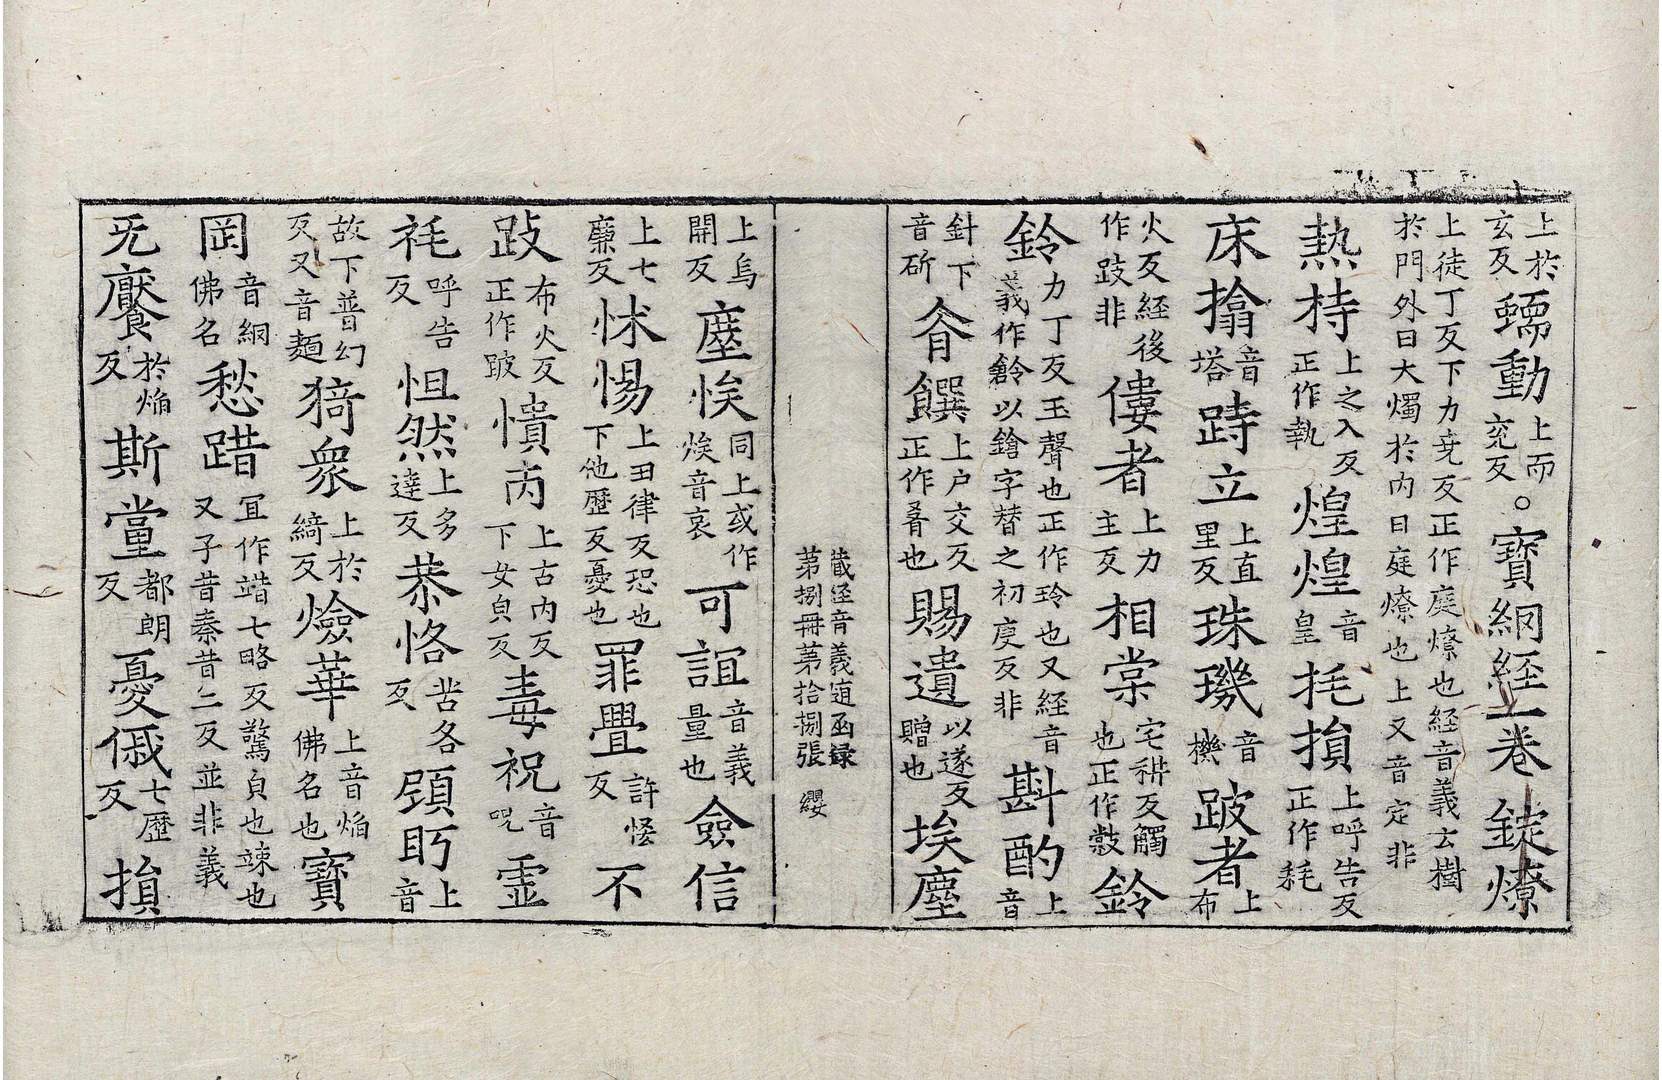 上於玄反蠕動上而兖反。寶綱経一卷錠燎
上徒丁反下力尭反正作庭燎也経音義云樹於門外曰大燭於内曰庭燎也上又音定非
熱持上之入反正作執煌煌音皇㧌損上呼告反正作耗
床搚音塔跱立上直里反珠璣音機跛者上布
火反経後作跂非僂者上力主反相棠宅耕反觸也正作敹鈴
鈴力丁反玉聲也正作玲也又経音義作鎗以鎗字替之初庚反非斟酌上音
針下音斫肴饌上户交反正作肴也賜遺以遂反贈也埃塵
蔵经音義随函録
苐捌冊苐拾捌張 纓
上烏開反塵㤥同上或作㶼音哀可誼音義量也僉信
上七廉反怵惕上丑律反恐也下他歴反憂也罪舋許㤪反不
跂布火反正作跛憒㒼上古内反下女皃反毒祝音呪霊
祗呼告反怛然上多達反恭恪苦各反頋眄上音
故下普幻反又音麵猗衆上於綺反燄華上音焔佛名也寳
罔音綱佛名愁踖冝作踖七略反驚皃也竦也又子昔秦昔二反並非義
旡饜於焔反斯黨都朗反憂傶七歴反損